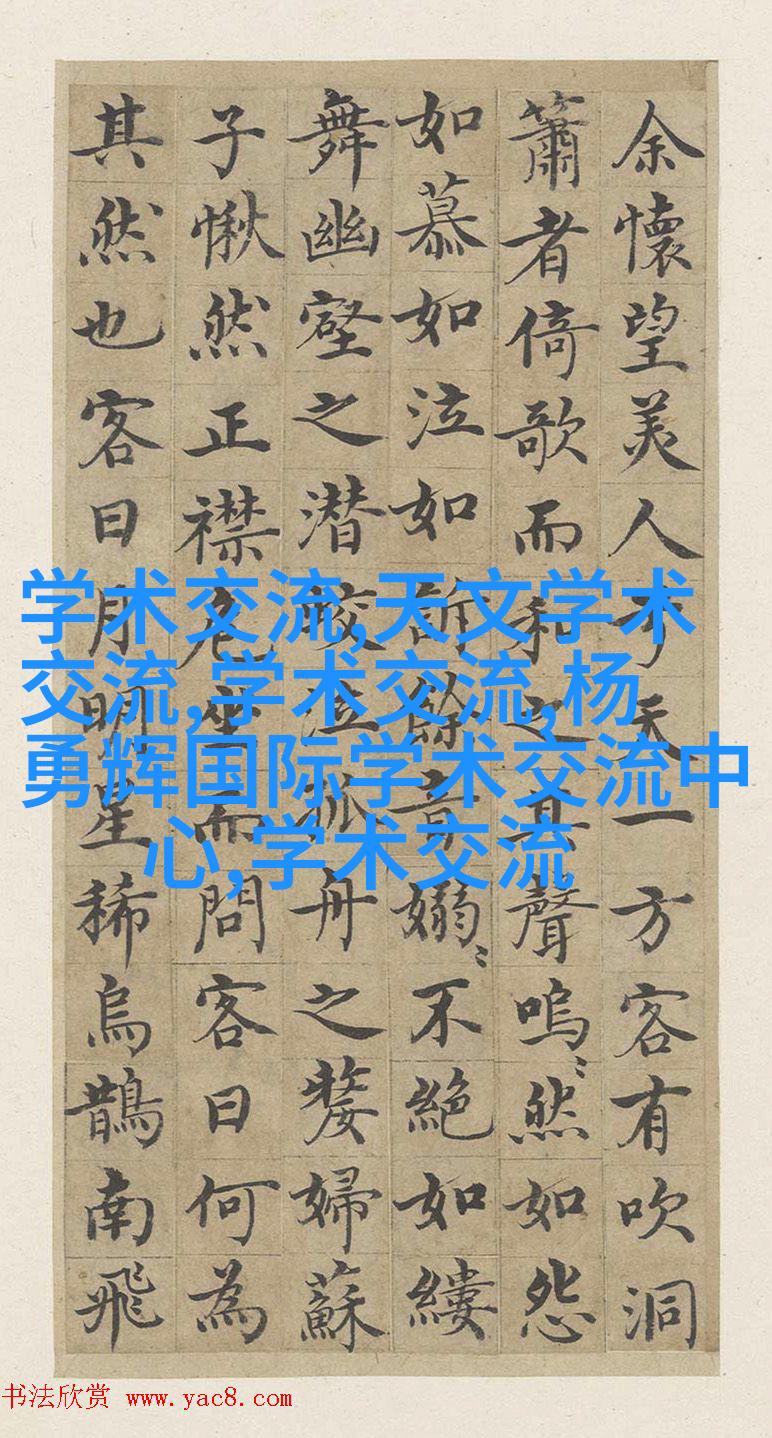 余懷望美人兮天一方客有吹洞
簫者倚歌而和之其聲嗚〻然如怨
如慕如泣如訴餘音嫋〻不絕如縷
舞幽壑之潜蛟泣孤舟之嫠婦蘇
子愀然正襟危坐而問客曰何為
其然也客曰月明星稀烏鵲南飛
学术交流,天文学术
交流,学术交流,杨
勇辉国际学术交流中
心,学术交流
书法欣赏 www.yac8.com